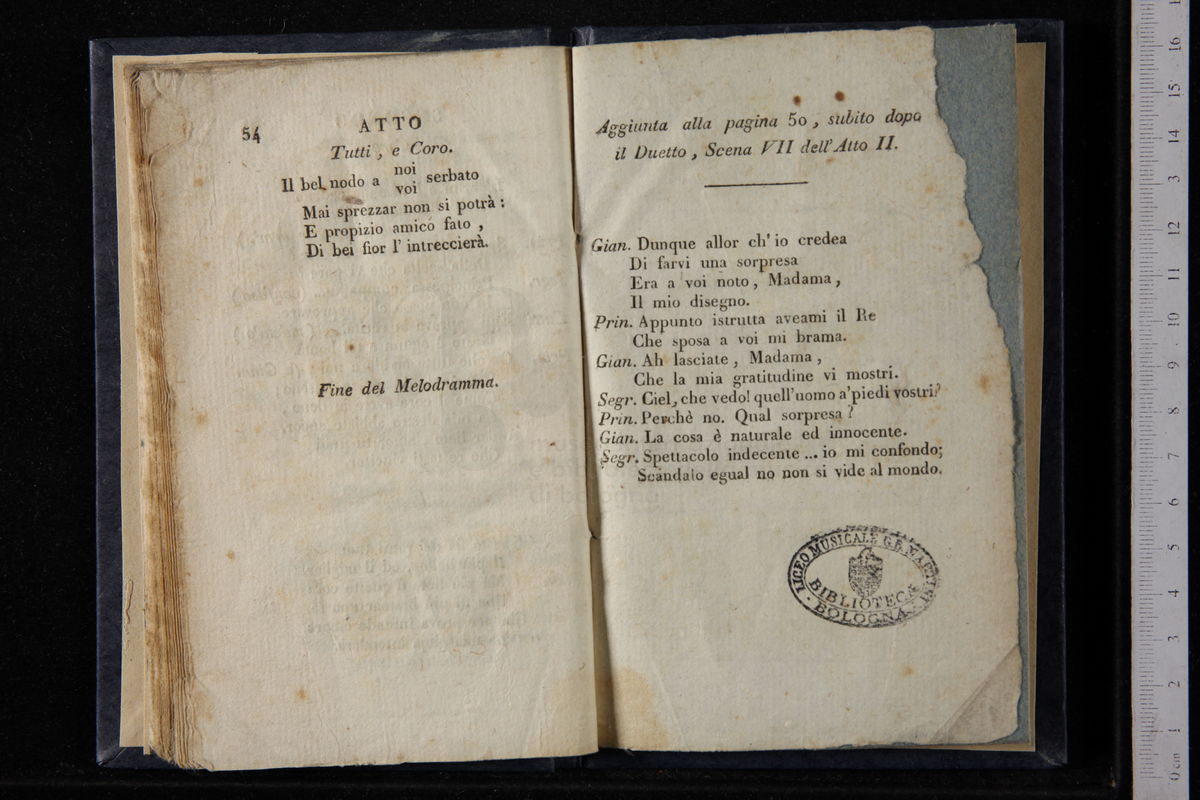 54
ATTO
Tutti, e Coro.
Il bel nodo a noi voi serbato
Mai sprezzar non si potrà:
E propizio amico fato,
Di bei fior l'intreccierà.
Fine del Melodramma.
Aggiunta alla pagina 50, subito dopo
il Duetto, Scena VII dell'Atto II.
Gian. Dunque allor ch'io credea
Di farvi una sorpresa
Era a voi noto, Madama,
Il mio disegno.
Prin. Appunto istrutta aveami il Re
Che sposa a voi mi brama.
Gian. Ah lasciate, Madama,
Che la mia gratitudine vi mostri.
Segr. Ciel, che vedo! quell'uomo a'piedi vostri?
Prin. Perchè no. Qual sorpresa?
Gian. La cosa è naturale ed innocente.
Segr. Spettacolo indecente ... io mi confondo;
Scandalo egual no non si vide al mondo.
LICEO MUSICALE G.B. MARTINI
BIBLIOTECA
BOLOGNA
16
15
14
13
12
11
10
9
8
7
6
5
4
3
2
1
0 cm